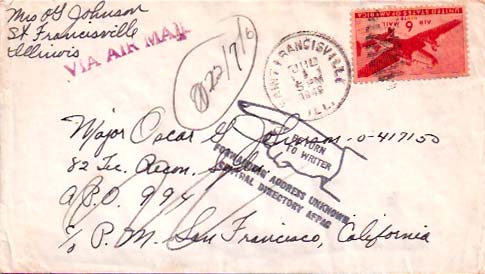 Mrs O G Johnson
St Francisville
Illinois
VIA AIR MAIL
823/7/6
SAINT FRANCISVILLE
JUL
1
5 PM
1946
ILL.
UNITED STATES OF AMERICA
AIR MAIL
6¢
Major Oscar G Johnson O-417150
82 Tac. Recon.
A.P.O. 994
c/o P.M. San Francisco, California
RETURN
TO WRITER
FORWARDING ADDRESS UNKNOWN
CENTRAL DIRECTORY AFPAC